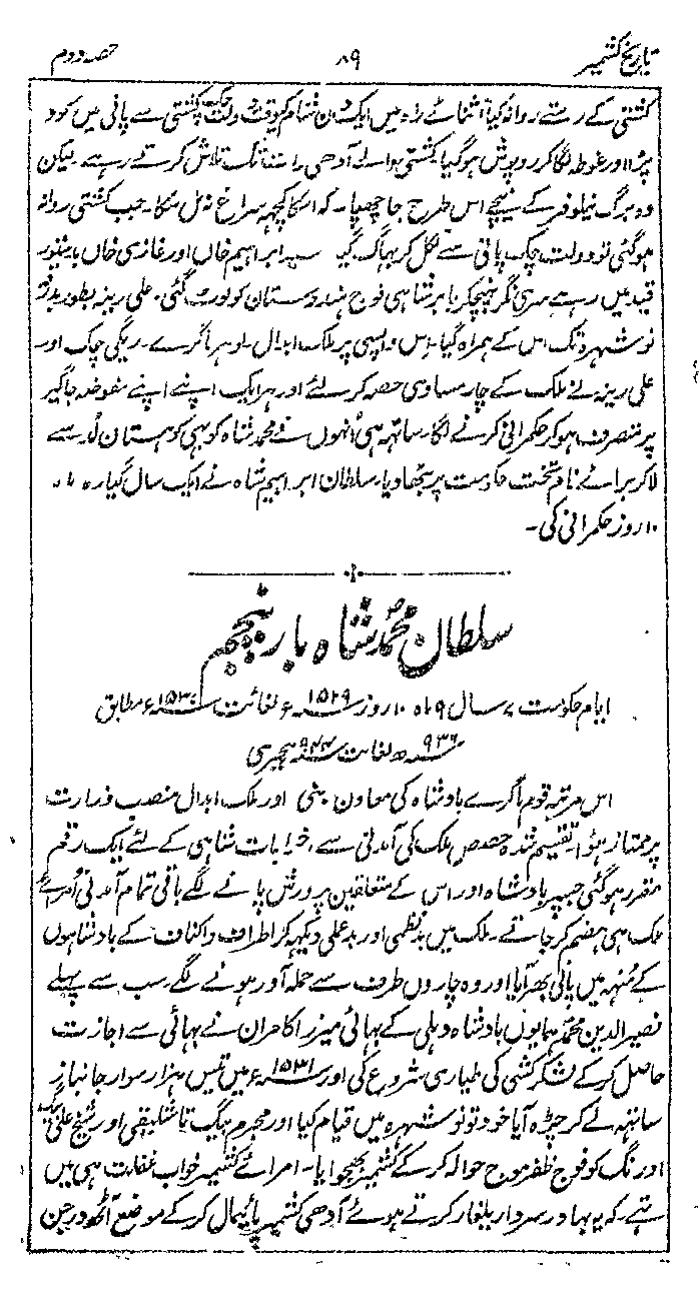 تاریخ کشمیر ۸۹ حصہ دوم
کشتی کے رستے روانہ کیا۔ اثنائے راہ میں ایک دن شام کیوقت دولت چک کشتی سے پانی میں کود
پڑا اور غوطہ لگا کر روپوش ہوگیا۔ کشتی والے آدھی رات تک تلاش کرتے رہے لیکن
وہ برگ نیلوفر کے نیچے اس طرح جا چھپا۔ کہ اسکا کچھ سراغ نہ مل سکا۔ جب کشتی روانہ
ہوگئی تو دولت چک پانی سے نکل کر بھاگ گیا سید ابراہیم خاں اور غازی خاں بدستور
قید میں رہے سری نگر پہنچکر بابر شاہی فوج ہندوستان کو لوٹ گئی۔ علی رینہ بطور بدرقہ
نوشہرہ تک اس کے ہمراہ گیا۔ اس واپسی پر ملک ابدال۔ لوہر ماگرے۔ ریگی چک اور
علی رینہ نے ملک کے چار مساوی حصہ کر لئے اور ہر ایک اپنے اپنے مفوضہ جاگیر
پر متصرف ہوکر حکمرانی کرنے لگا۔ ساتھ ہی اُنہوں نے محمد شاہ کو بھی کوہستان سے
لاکر برائے نام تخت حکومت پر بٹھا دیا۔ سلطان ابراہیم شاہ نے ایک سال گیارہ ماہ
۱۰ روز حکمرانی کی۔
سلطان محمد شاہ بار پنجم
ایام حکومت ۷ سال ۹ ماہ ۱۰ روز ۱۵۲۹ء لغائت ۱۵۳۷ء مطابق
۹۳۶ھ لغائت ۹۴۴ ہجری
اس مرتبہ قوم ماگرے بادشاہ کی معاون بنی اور ملک ابدال منصب وزارت
پر ممتاز ہوا۔ تقسیم شدہ حصص ملک کی آمدنی سے اخراجات شاہی کے لئے ایک رقم
مقرر ہوگئی جسپر بادشاہ اور اس کے متعلقین پرورش پانے لگے باقی تمام آمدنی اُمرائے
ملک ہی ہضم کر جاتے۔ ملک میں بدنظمی اور بدعملی دیکھ کر اطراف واکناف کے بادشاہوں
کے مُنہہ میں پانی بھر آیا اور وہ چاروں طرف سے حملہ آور ہونے لگے۔ سب سے پہلے
نصیر الدین محمد ہمایوں بادشاہ دہلی کے بھائی میرزا کامران نے بھائی سے اجازت
حاصل کرکے لشکر کشی کی طیاری شروع کی اور ۱۵۳۱ء میں تیس ہزار سوار جانباز
ساتھ لے کر چڑھ آیا خود تو نوشہرہ میں قیام کیا اور محرم بیگ اتالیقی اور شیخ علی بیگ
اورنگ کو فوج ظفر موج حوالہ کرکے کشمیر بھجوایا۔ امرائے کشمیر خواب غفلت ہی میں
تھے۔ کہ یہ بہادر سردار یلغار کرتے ہوئے آدھی کشمیر پائیمال کرکے موضع اٹھودرجن